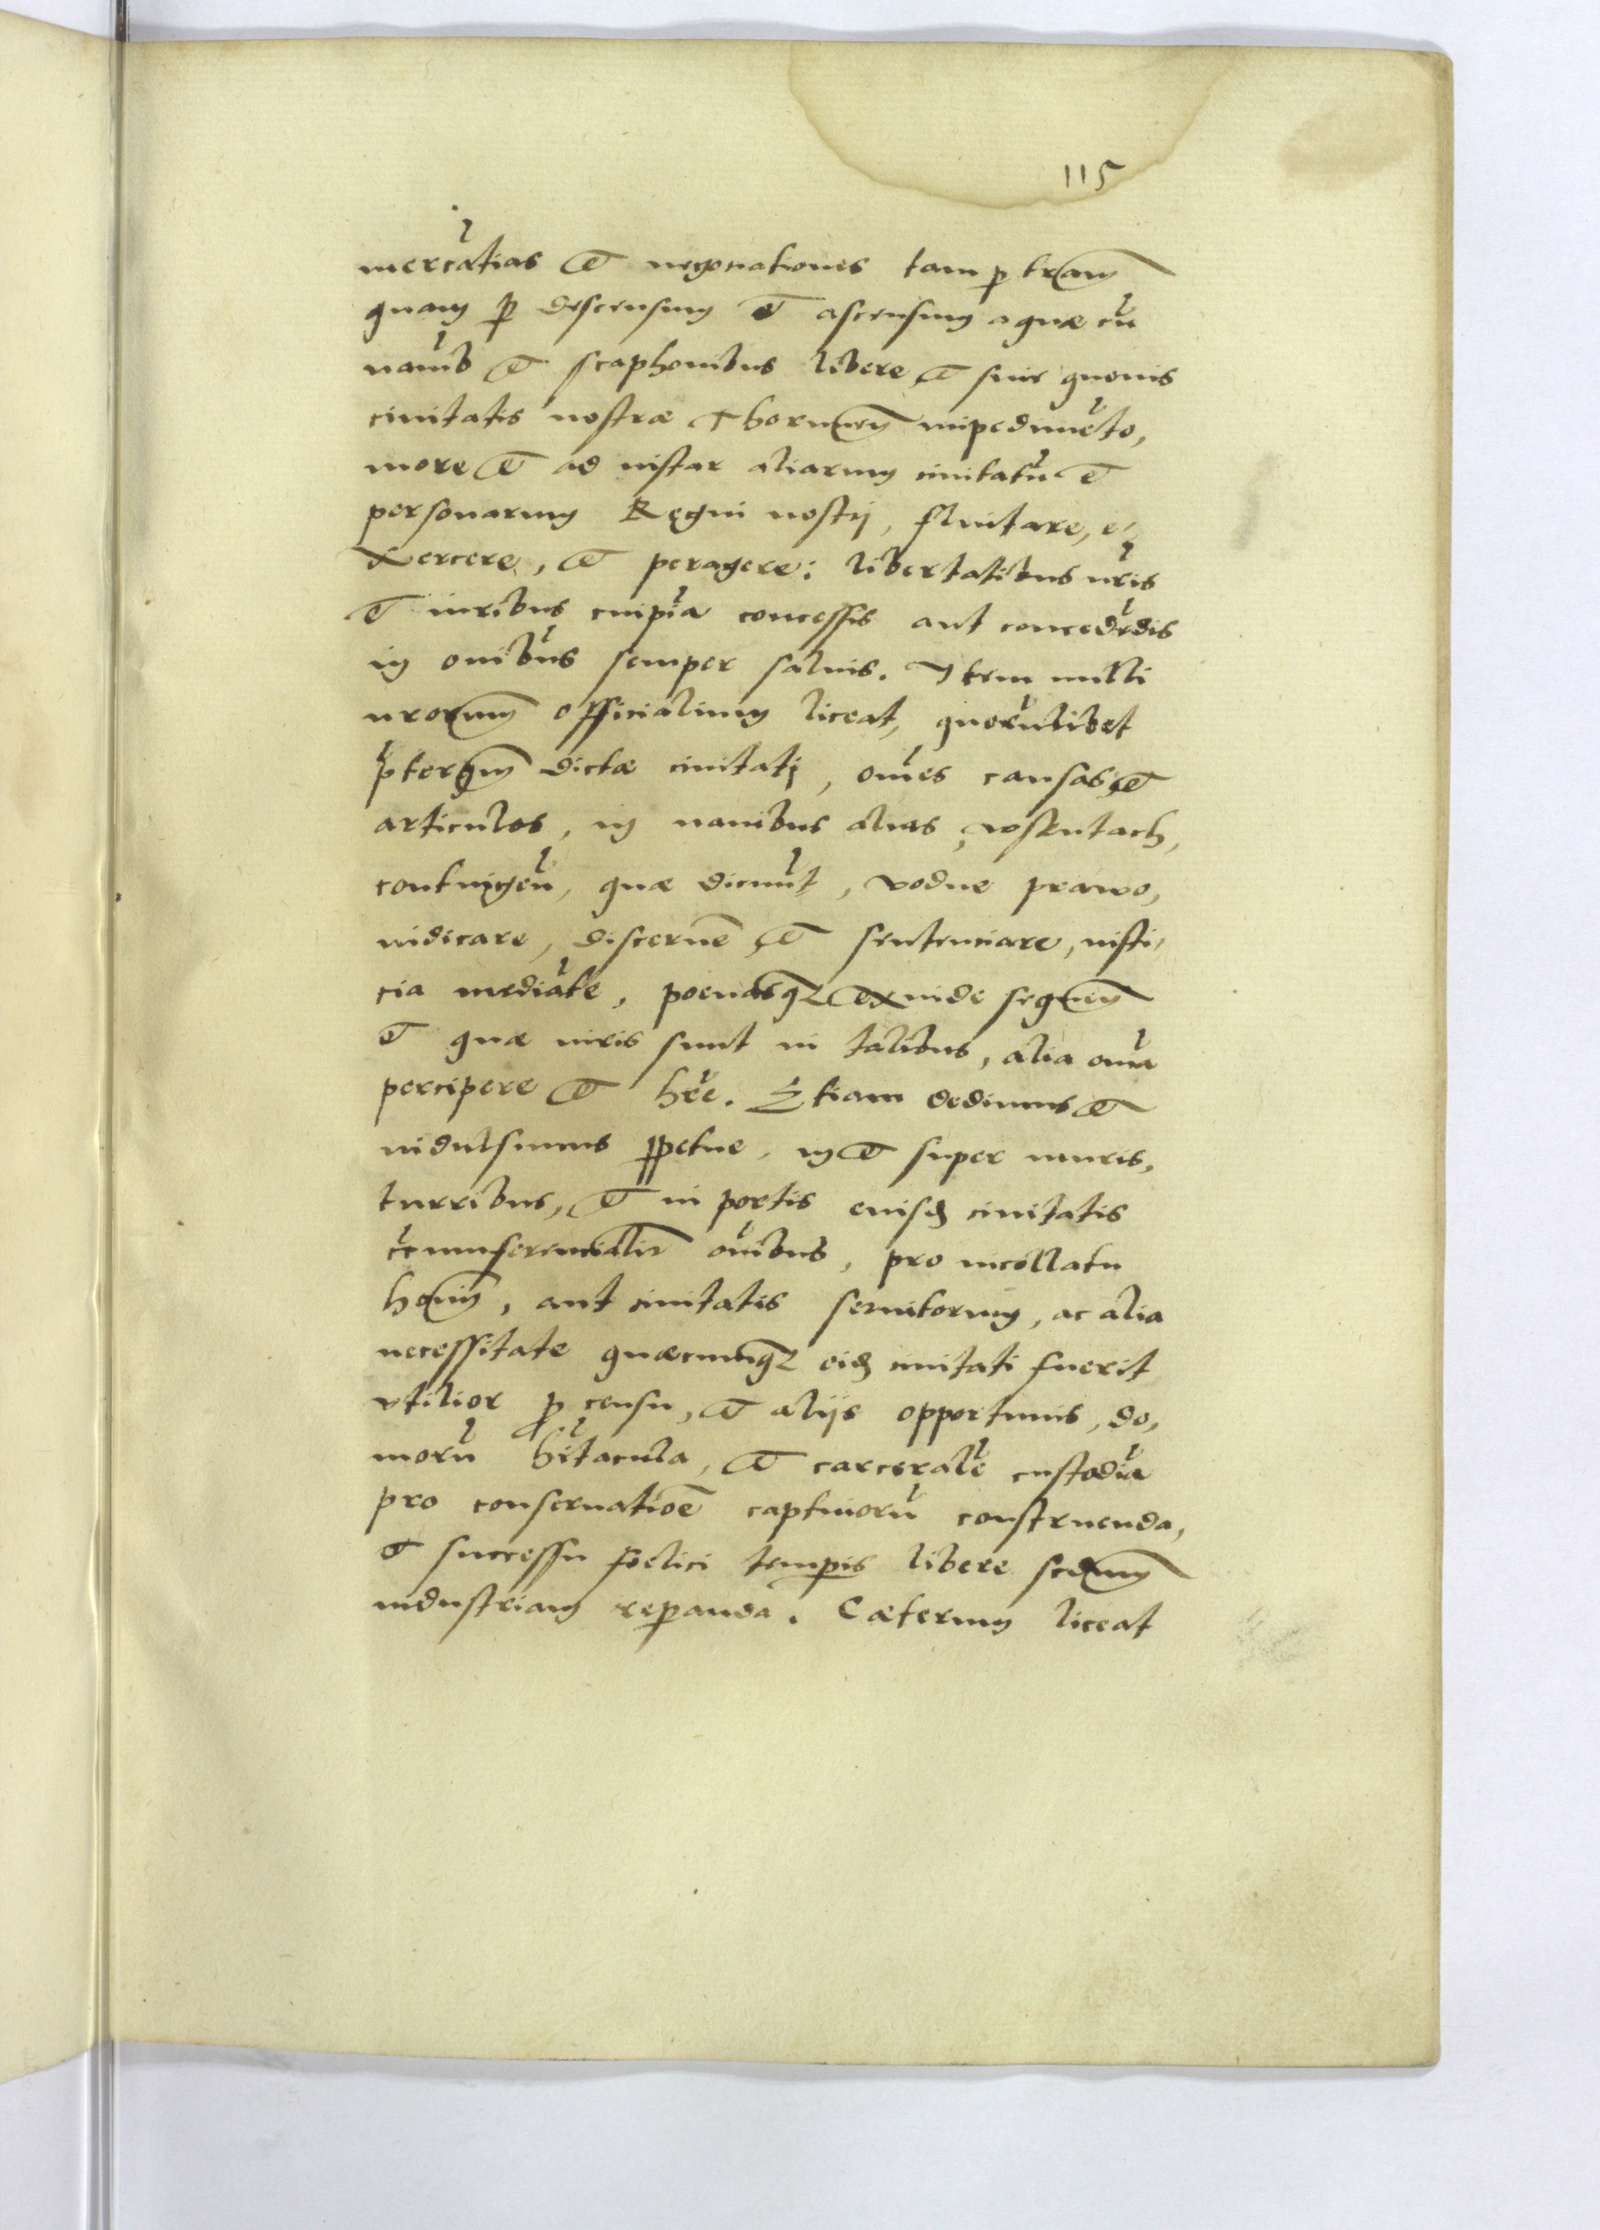 115
mercãtias et negotiationes tam p tram
quam p descensum et ascensum aquæ cũ
nauib et scaphonibus libere et sine quouis
ciuitatis nostræ Thorunen impedimẽto,
more et ad instar aliarum ciuitatũ et
personarum Regni nostrj, fluitare, e,
xercere, et peragere: libertatibus nr̃is
et iuribus cuipiã concessis aut concedẽdis
in oñibus semper saluis. Item nulli
nrorum officialium liceat, quorũlibet
p̃terqm dictæ ciuitatj, oñes causas, et
articulos, in nauibus alias, wstrutach,
contingeñ, quæ dicunt, wodne prawo,
iudicare, discerne et sentenciare, iusti,
cia mediãte, poenasqz exinde sequen
et quæ iuris sunt in talibus, alia oñia
percipere et hr̃e. Etiam dedimus et
indulsimus ppetue, in et super muris,
turribus, et in portis eiusd ciuitatis
c̃cumferencialit oñibus, pro incollatu
hoium, aut ciuitatis seruitorum, ac alia
necessitate quæcumqz eid ciuitati fuerit
vtilior p censu, et alijs opportunis, do,
morũ hr̃tacula, et carceralẽ custodiã
pro conseruatioẽ captiuorũ construenda,
et successu foelici tempis libere scdum
industriam repanda. Cæterum liceat